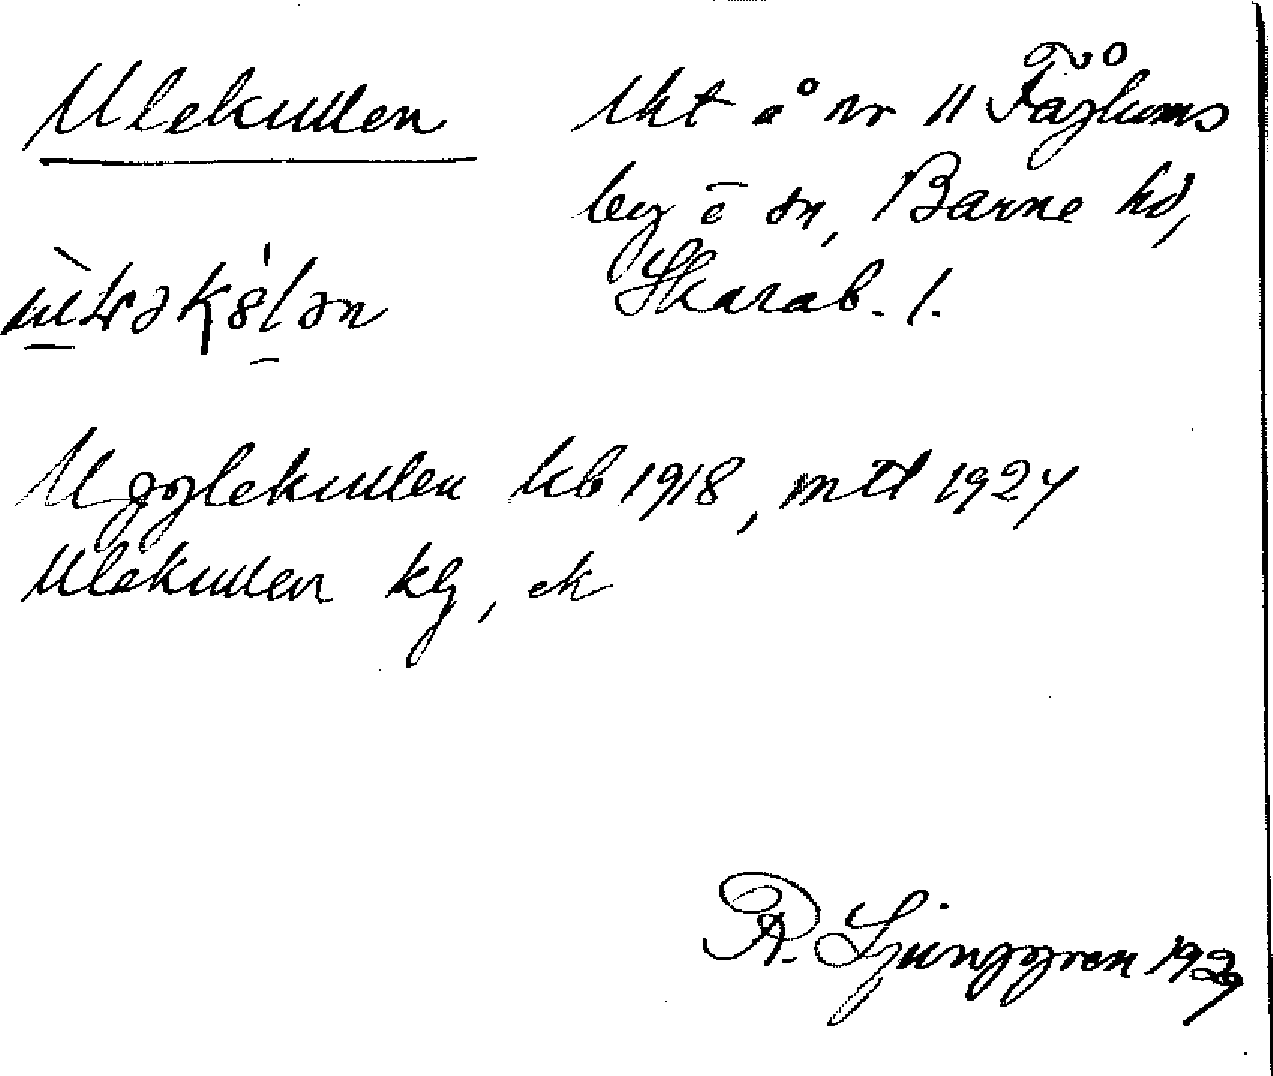 Ulekullen
lht å nr 11 Fåglums
by o sn, Barne hd,
Skarab. l.
Ugglekullen kb 1918, mtl 1927
Ulekullen kg, ek
R. Ljunggren 1929